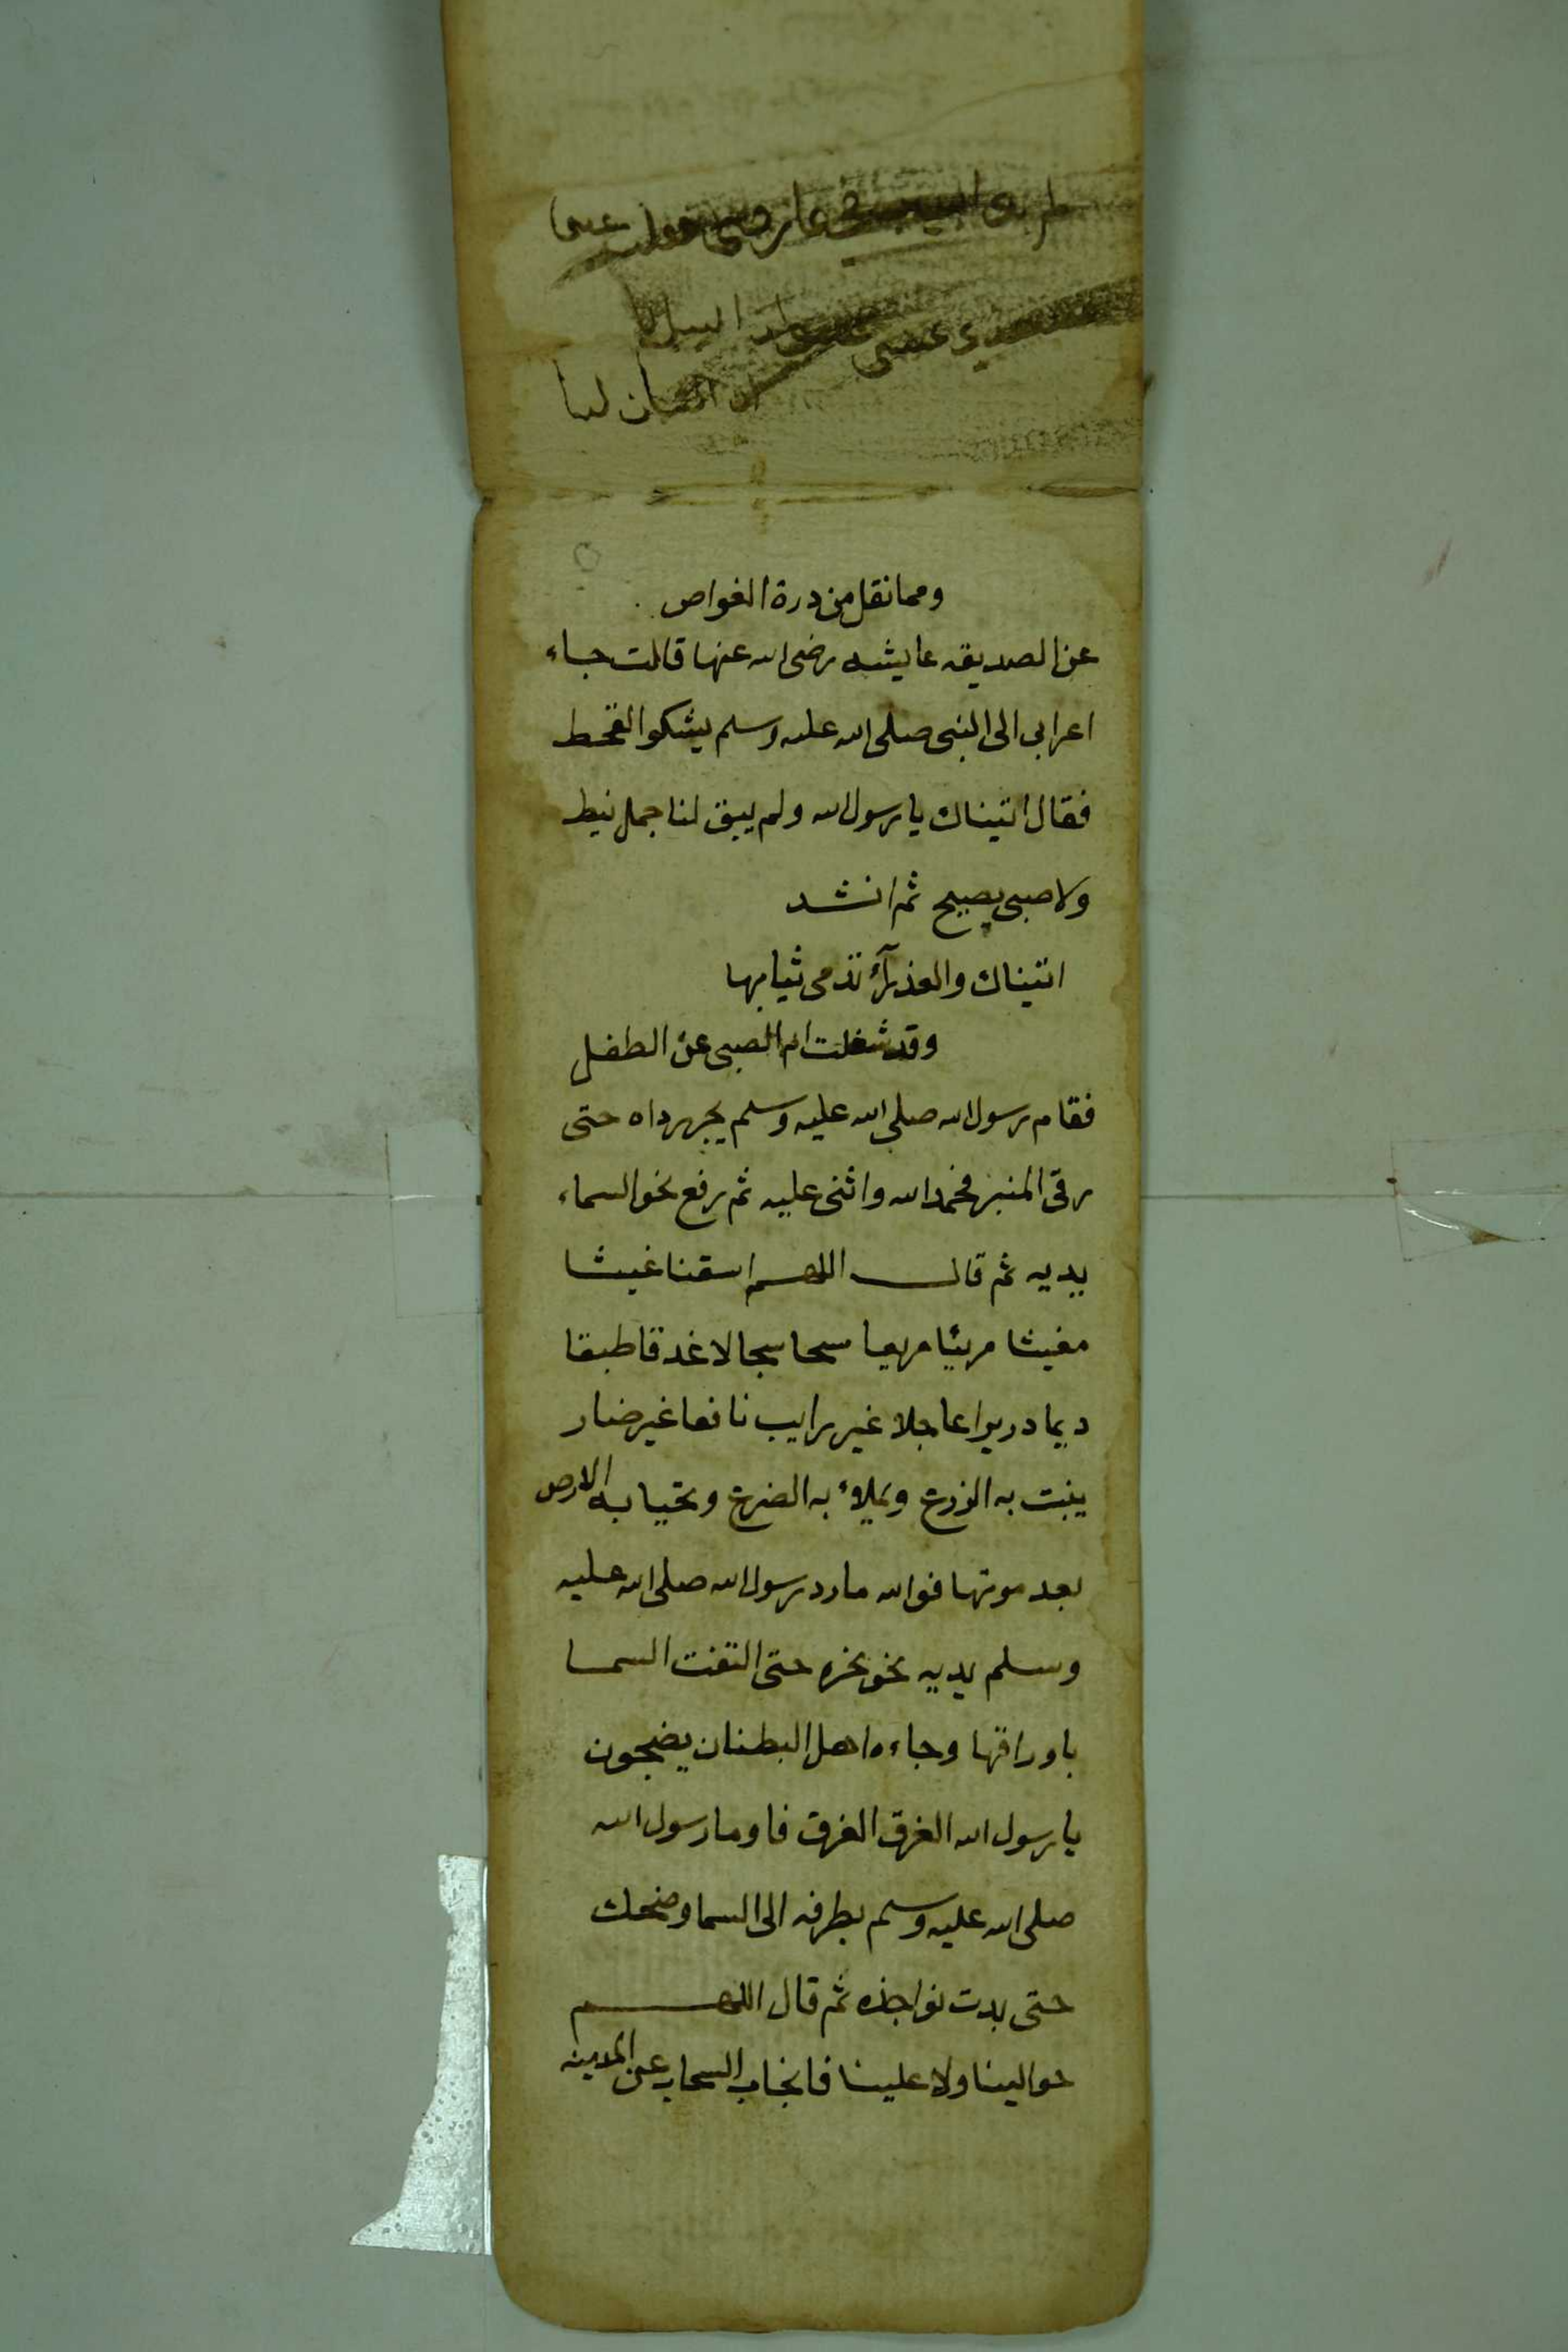 ومما نقل من درة الغواص
عن الصديقه عايشه رضى الله عنها قالت جاء
اعرابى الى النبى صلى الله عليه وسلم يشكوا القحط
فقال اتيناك يا رسول الله ولم يبق لنا جمل نيط
ولا صبى يصيح ثم انشد
اتيناك والعذرآء تدمى ثيابها
وقد شغلت ام الصبى عن الطفل
فقام رسول الله صلى الله عليه وسلم يجر رداه حتى
رقى المنبر فحمد الله واثنى عليه ثم رفع نحو السماء
يديه ثم قال اللهم اسقنا غيثا
مغيثا مريئا مريعا سحا سجالا غدقا طبقا
ديما دريرا عاجلا غير رايب نافعا غير ضار
ينبت به الزرع ويملاء به الضرع وتحيا به الارض
بعد موتها فوالله ما رد رسول الله صلى الله عليه
وسلم يديه نحو نحره حتى التفت السما
باوراقها وجاءه اهل البطنان يضجون
يا رسول الله الغرق الغرق فاوما رسول الله
صلى الله عليه وسلم بطرفه الى السما وضحك
حتى بدت نواجذه ثم قال اللهم
حوالينا ولا علينا فانجاب السحاب عن المدينه